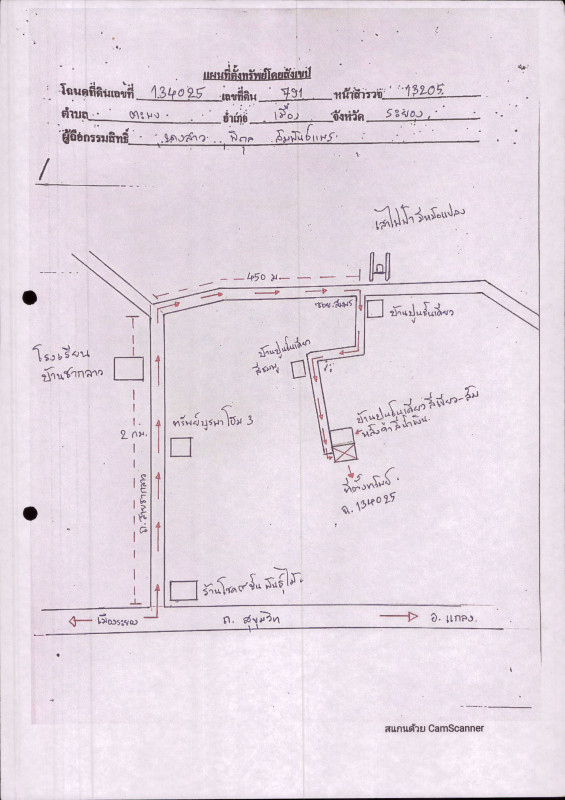 แผนที่ตั้งทรัพย์โดยสังเขป
โฉนดที่ดินเลขที่ 134025 เลขที่ดิน 791 หน้าสำรวจ 13205
ตำบล ตะพง อำเภอ เมือง จังหวัด ระยอง
ผู้ถือกรรมสิทธิ์ นางสาว
เสาไฟฟ้า มีหม้อแปลง
450 ม.
ซอย
บ้านปูนชั้นเดียว
บ้านปูนชั้นเดียว
สีชมพู
โรงเรียน
บ้านชากลาว
2 กม.
ทรัพย์บูรพา โฮม 3
บ้านปูนชั้นเดียว สีเขียว-ส้ม
หลังคา สีน้ำเงิน
ที่ตั้งทรัพย์
ฉ. 134025
ถ. สายชากลาว
ร้านโชค ชั้น พันธุ์ไม้
เมืองระยอง
ถ. สุขุมวิท
อ. แกลง
สแกนด้วย CamScanner